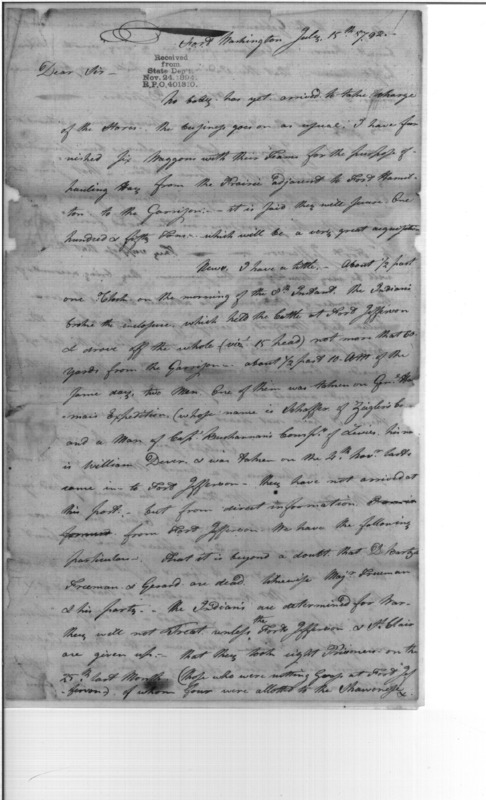 Fort Washington July 15th 1792.
Received
from
State Dept.
Nov. 24, 1894,
R.P.O. 401310.
Dear Sir
No body has yet arrived to take charge
of the Stores. the business goes on as usual; I have fur
nished six Waggons with their Teams for the purpose of
hauling Hay from the Prairie adjacent to Fort Hamil-
ton to the Garrison. - it is said they will secure One
hundred & fifty Tons - which will be a very great acquisition
News, I have a little. - About 1/2 past
one OClock on the morning of the Instant the Indians
broke the inclosure which held the Cattle at Fort Jefferson
& drove off the whole (viz. 15 head) not more than 60
yards from the Garrison - about 1/2 past 10. A.M. of the
same day, two Men. One of them was taken on Genl. Har
mars Expedition (whose name is Schaffer of Zieglers Co.
and a Man of Capt. Buchanans Compy. of Levies, his name
is William Dever. & was taken on the 4th Novr. last
came in to Fort Jefferson - they have not arrived at
this post. - but from direct information
from Fort Jefferson. We have the following
particulars. That it is beyond a doubt that
Freeman & Gerard are dead. likewise Majr. Trueman
& his party. - the Indians are determined for War.
they will not Treat unless the Forts Jefferson & St. Clair
are given up. - that they took eight Prisoners on the
25th last Month (those who were cutting Grass at Fort Jef
ferson) of whom four were alloted to the Shawenese,